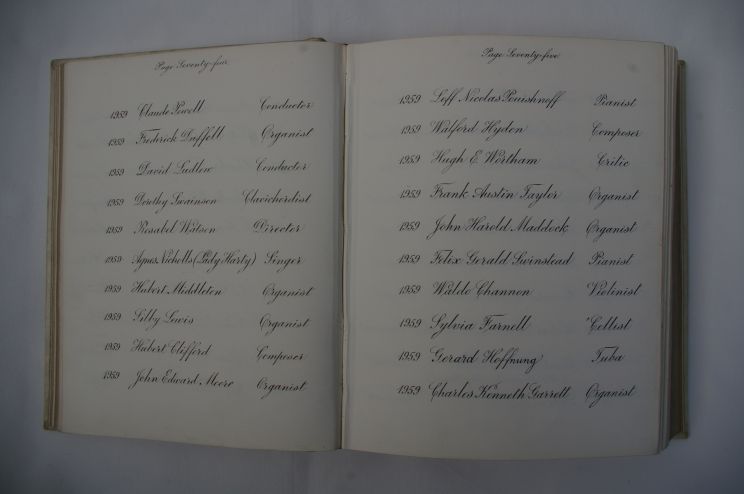 Page Seventy-four
1959 Claude Powell Conductor
1959 Frederick Duffell Organist
1959 David Ludlow Conductor
1959 Dorothy Swainson Clavichordist
1959 Rosabel Watson Director
1959 Agnes Nicholls (Lady Harty) Singer
1959 Hubert Middleton Organist
1959 Silby Lewis Organist
1959 Hubert Clifford Composer
1959 John Edward Moore Organist
Page Seventy-five
1959 Leff Nicolas Pouishnoff Pianist
1959 Walford Hyden Composer
1959 Hugh E. Wortham Critic
1959 Frank Austin Taylor Organist
1959 John Harold Maddock Organist
1959 Felix Gerald Swinstead Pianist
1959 Waldo Channon Violinist
1959 Sylvia Farnell Cellist
1959 Gerard Hoffnung Tuba
1959 Charles Kenneth Garrett Organist